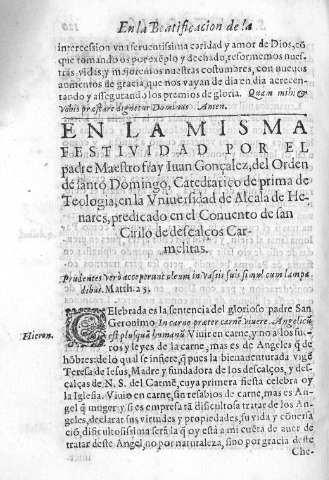 En la Beatificacion de la
intercession vna feruentissima caridad y amor de Dios, cõ
que tomando os por exẽplo y dechado, reformemos nues-
tras vidas, y mejoremos nuestras costumbres, con nueuos
aumentos de gracia, que nos vayan de dia en dia acrecen-
tando y assegurando los premios de gloria. Quam mihi &
vobis præstare dignetur Dominus Amen.
EN LA MISMA
FESTIVIDAD POR EL
padre Maestro fray Iuan Gonçalez, del Orden
de santo Domingo, Catedratico de prima de
Teologia, en la Vniuersidad de Alcala de He-
nares, predicado en el Conuento de san
Cirilo de descalços Car-
melitas.
Prudentes verò acceperunt oleum in vasis suis simul cum lampa
dibus. Matth. 25.
CElebrada es la sentencia del glorioso padre San
Hieron. Geronimo. In carne præter carnẽ viuere. Angelicũ
est plusquã humanũ Viuir en carne, y no a los fue-
ros y leyes de la carne, mas es de Angeles q̃ de
hõbres: de lo qual se infiere, q̃ pues la bienauenturada virgẽ
Teresa de Iesus, Madre y fundadora de los descalços, y des-
calças de N. S. del Carmẽ, cuya primera fiesta celebra oy
la Iglesia. Viuio en carne, sin resabios de carne, mas es An-
gel q̃ muger: y si es empresa tã dificultosa tratar de los An-
geles, declarar sus virtudes y propiedades, su vida y cõuersa
ciõ, dificultosissima serà la q̃ oy està a mi cuẽta de auer de
tratar deste Angel, no por naturaleza, sino por gracia deste
Che-